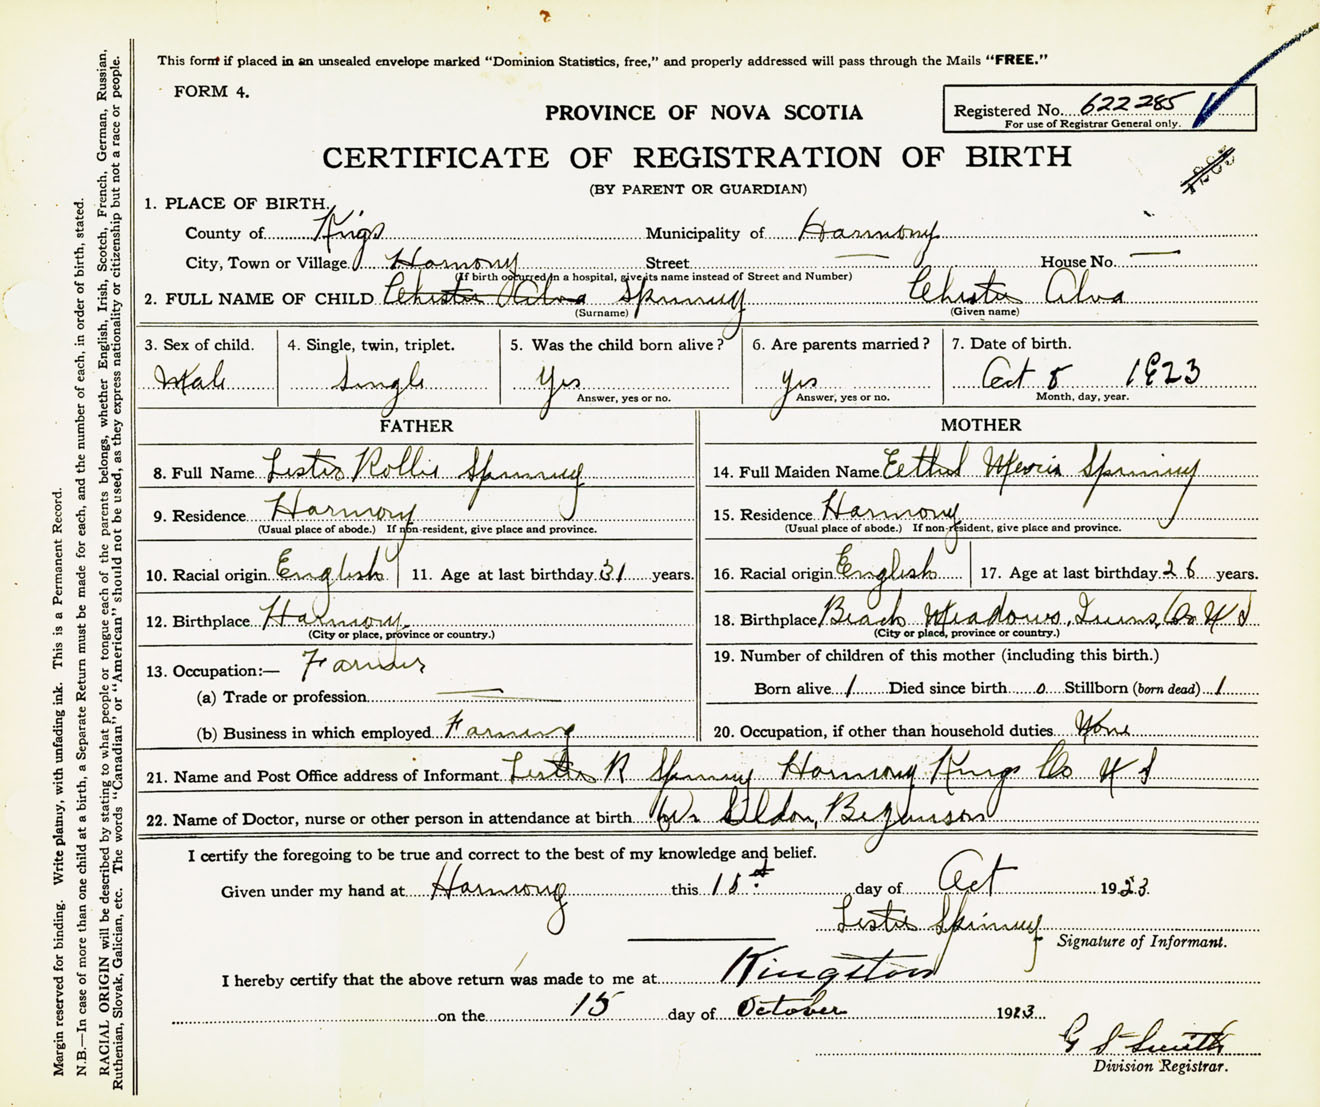 This form if placed in an unsealed envelope marked "Dominion Statistics, free," and properly addressed will pass through the Mails "FREE."
FORM 4.
PROVINCE OF NOVA SCOTIA
Registered No. 622285
For use of Registrar General only.
CERTIFICATE OF REGISTRATION OF BIRTH
(BY PARENT OR GUARDIAN)
1. PLACE OF BIRTH.
County of Kings Municipality of Harmony
City, Town or Village Harmony Street — House No. —
(If birth occurred in a hospital, give its name instead of Street and Number)
2. FULL NAME OF CHILD Chester Alva Spinney Chester Alva
(Surname) (Given name)
3. Sex of child. 4. Single, twin, triplet. 5. Was the child born alive? 6. Are parents married? 7. Date of birth.
Male Single Yes Yes Oct 8 1923
Answer, yes or no. Answer, yes or no. Month, day, year.
FATHER MOTHER
8. Full Name Lester Rollie Spinney 14. Full Maiden Name Eethel Spinney
9. Residence Harmony 15. Residence Harmony
(Usual place of abode.) If non-resident, give place and province. (Usual place of abode.) If non-resident, give place and province.
10. Racial origin English 11. Age at last birthday 31 years. 16. Racial origin English 17. Age at last birthday 26 years.
12. Birthplace Harmony 18. Birthplace Beach Meadows, Queens, Co N S
(City or place, province or country.) (City or place, province or country.)
13. Occupation:— Farmer 19. Number of children of this mother (including this birth.)
(a) Trade or profession — Born alive 1 Died since birth 0 Stillborn (born dead) 1
(b) Business in which employed Farming 20. Occupation, if other than household duties None
21. Name and Post Office address of Informant Lester R Spinney Harmony Kings Co N S
22. Name of Doctor, nurse or other person in attendance at birth
I certify the foregoing to be true and correct to the best of my knowledge and belief.
Given under my hand at Harmony this 15 day of Oct 1923.
Lester Spinney
Signature of Informant.
I hereby certify that the above return was made to me at Kingston
on the 15 day of October 1923.
G Smith
Division Registrar.
Margin reserved for binding. Write plainly, with unfading ink. This is a Permanent Record.
N.B.—In case of more than one child at a birth, a Separate Return must be made for each, and the number of each, in order of birth, stated.
RACIAL ORIGIN will be described by stating to what people or tongue each of the parents belongs, whether English, Irish, Scotch, French, German, Russian,
Ruthenian, Slovak, Galician, etc. The words "Canadian" or "American" should not be used, as they express nationality or citizenship but not a race or people.